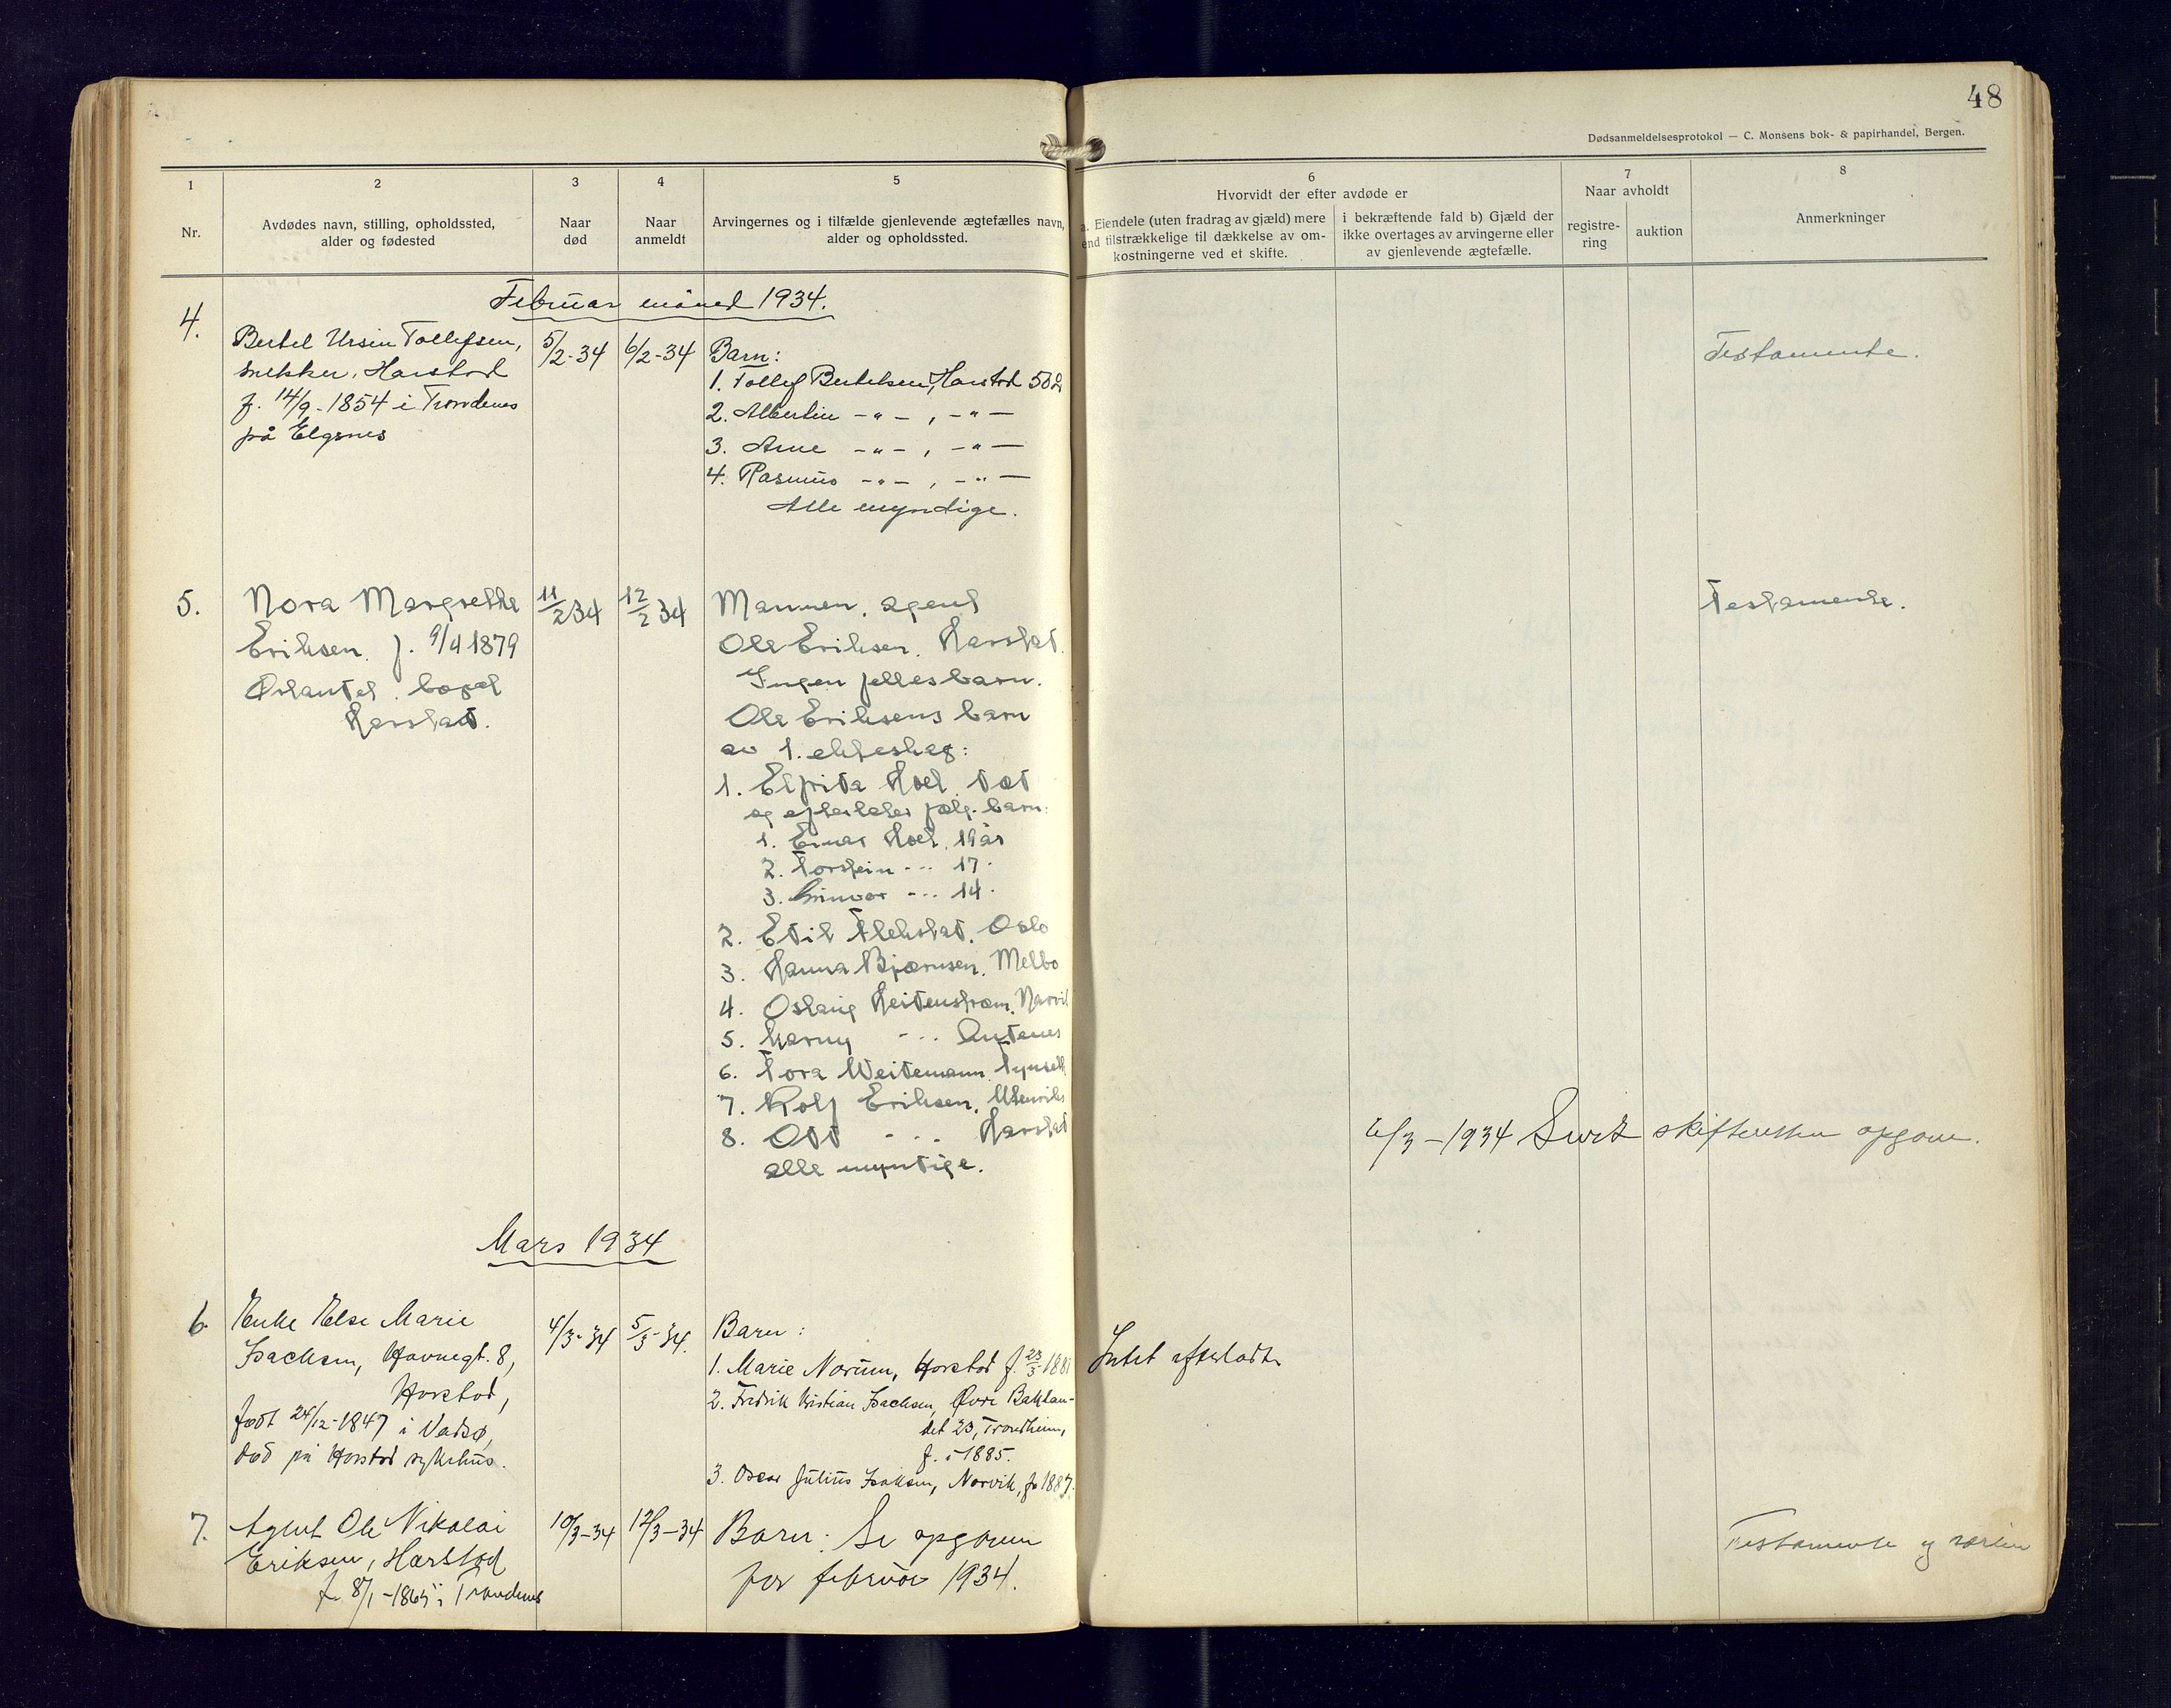 48
Dødsanmeldelsesprotokol — C. Monsens bok- & papirhandel, Bergen.
1
Nr.
2
Avdødes navn, stilling, opholdssted,
alder og fødested
3
Naar
død
4
Naar
anmeldt
5
Arvingernes og i tilfælde gjenlevende ægtefælles navn,
alder og opholdssted.
6
Hvorvidt der efter avdøde er
a. Eiendele (uten fradrag av gjæld) mere
end tilstrækkelige til dækkelse av om-
kostningerne ved et skifte.
i bekræftende fald b) Gjæld der
ikke overtages av arvingerne eller
av gjenlevende ægtefælle.
7
Naar avholdt
registre-
ring
auktion
8
Anmerkninger
Februar måned 1934.
4.
Bertel Ursin Tollefsen,
snekker, Harstad
f. 14/9-1854 i Trondenes
på Elgsnes
5/2-34
6/2-34
Barn:
1. Tollef Bertelsen, Harstad 502
2. Albertin -"-, -"-
3. Arne -"-, -"-
4. Rasmus -"-, -"-
Alle myndige.
Testamente.
5.
Nora Margrethe
Eriksen. f. 9/4 1879
bopæl
Harstad.
11/2 34
12/2 34
Mannen, agent
Ole Eriksen. Harstad.
Ingen fellesbarn.
Ole Eriksens barn
av 1. ekteskap:
1. Elfrida Hoel. død
og efterlater følg. barn:
1. Einar Hoel. 19 år
2. Torstein --- 17.
3. Gunvor --- 14.
2. Edil Flekstad. Oslo
3. Hanna Bjørnsen. Melbo
4. Oslaug Heitenstrøm. Narvik
5. Harny --- Andenes
6. Tora Weidemann. Tynseth
7. Rolf Eriksen.
8. Odd --- Harstad
alle myndige.
Testamente.
6/3-1934 skifteretten opgave.
Mars 1934
6
Enke Else Marie
Isachsen, Havnegt. 8,
Harstad,
født 24/12-1847 i Vadsø,
død på Harstad sykehus.
4/3-34
5/3-34.
Barn:
1. Marie Norum, Harstad f. 23/3 188
2. Fredrik Kristian Isachsen, Øvre Baklan-
det 23, Trondheim,
f. i 1885.
3. Oscar Julius Isaksen, Narvik, f. 1887.
Intet efterladt
7.
Agent Ole Nikolai
Eriksen, Harstad
f. 8/1-1865 i Trondenes
10/3-34
12/3-34
Barn: Se opgaven
for februar 1934.
Testamente og